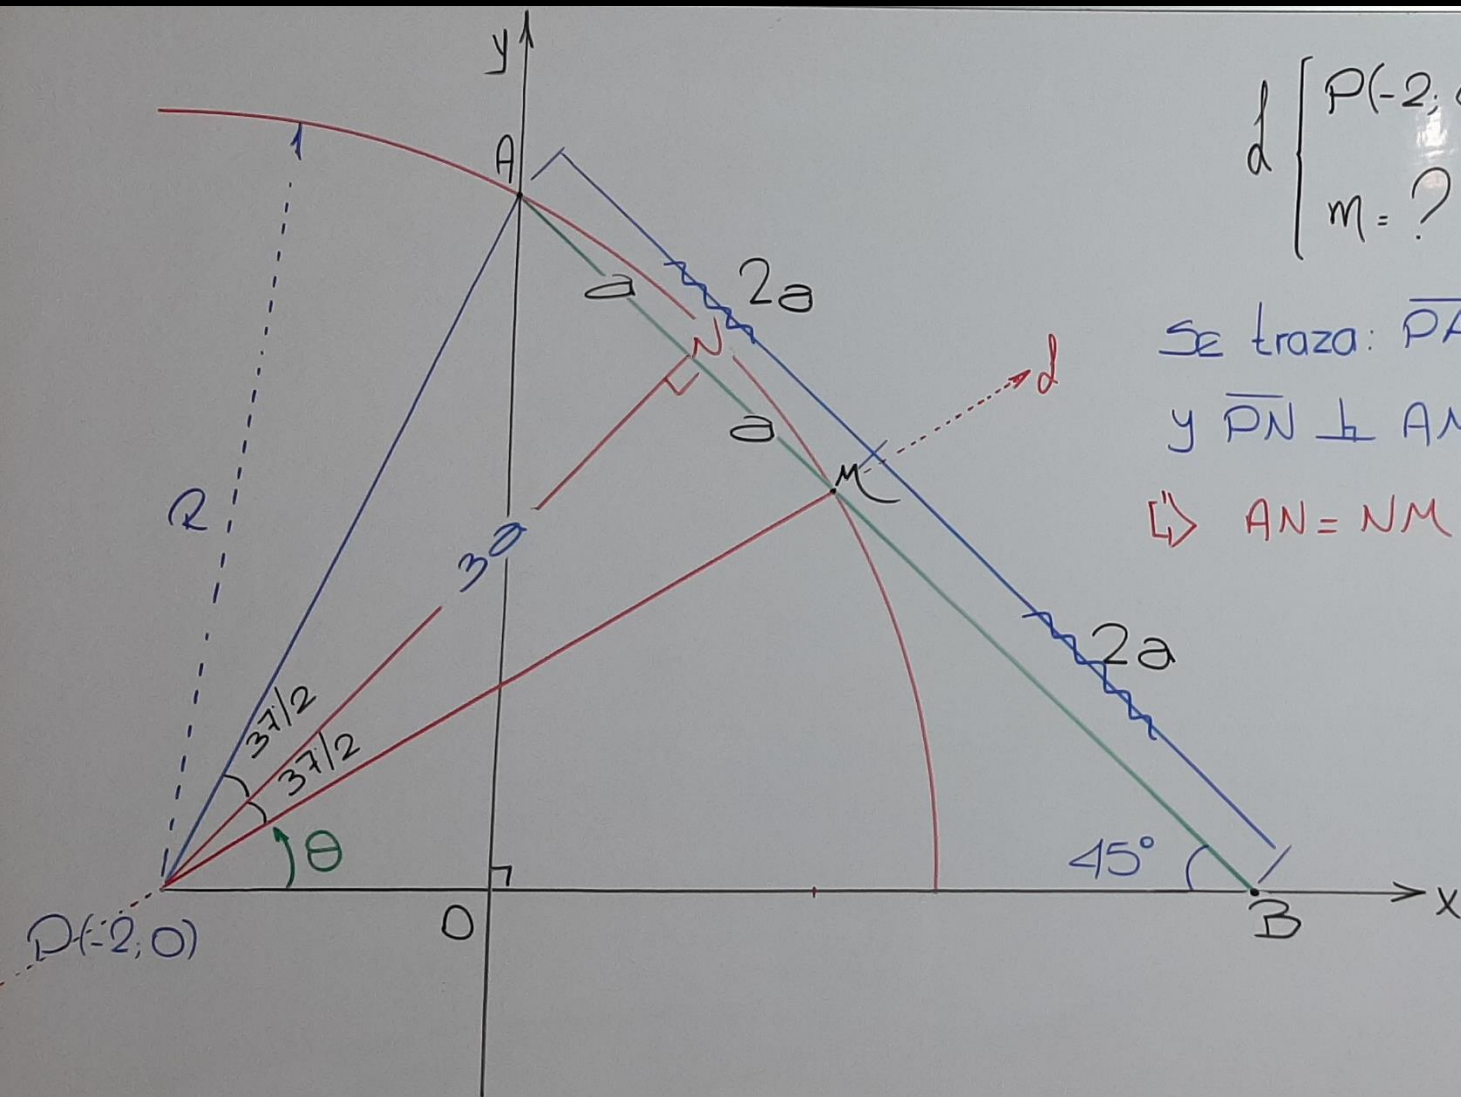 y
A
2a
a
N
a
M
d
R
3a
2a
37/2
37/2
θ
45°
P(-2;0)
O
B
x
d
P(-2;
m = ?
Se traza: PA
y PN ⊥ AN
⇨ AN = NM